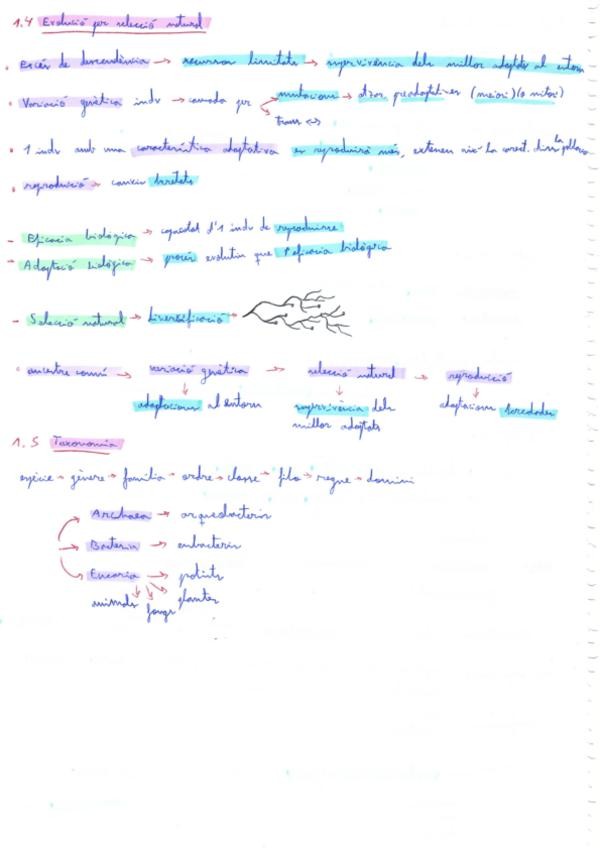 1.4 Evolució per selecció natural
• Excés de descendència → recursos limitats → supervivència dels millor adaptats al entorn
• Variació genètica indv → causada per → mutacions → atzar, preadaptatives (meiosi) (o mitosi)
trans ↔
• 1 indv amb una característica adaptativa es reproduirà més, extenent així la caract. dins la població
• reproducció → canvis heretats
- Eficacia biològica → capacitat d'1 indv de reproduirse
- Adaptació biològica → procés evolutiu que ↑ eficacia biològica
- Selecció natural → diversificació →
• ancestre comú → variació genètica → selecció natural → reproducció
adaptacions al entorn supervivència dels millor adaptats adaptacions heredades
1.5 Taxonomia
espècie → gènere → família → ordre → classe → filo → regne → domini
Archaea → arqueobacteris
Bacteria → eubacteris
Eucaria → protists
animals fongs plantes